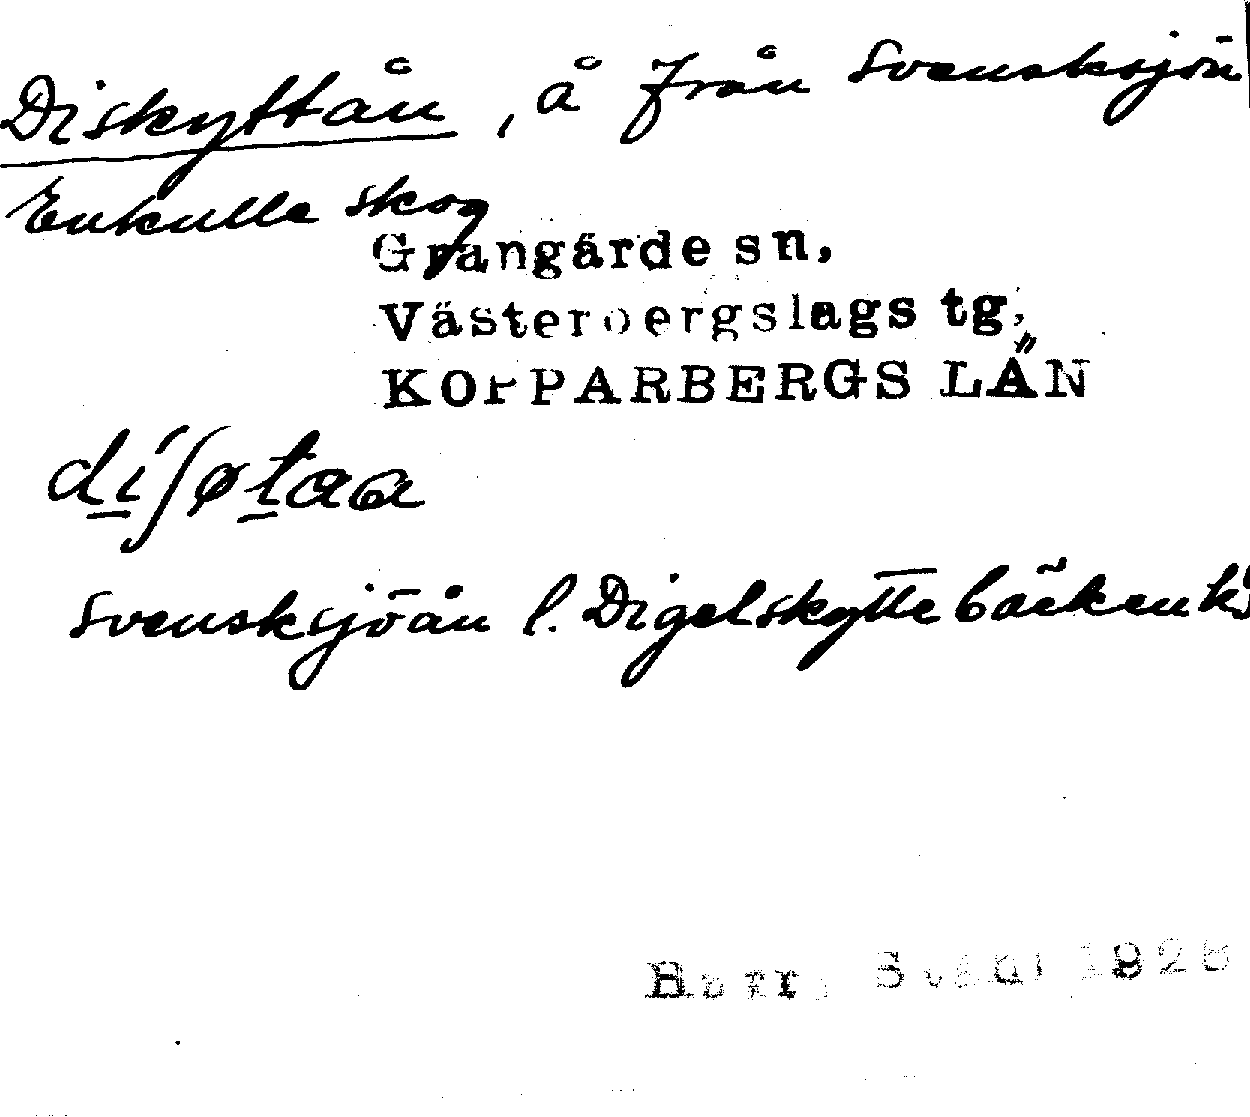 Diskyttån, å från Svensksjön
Enkulla skog
Grangärde sn,
Västerbergslags tg,
KOPPARBERGS LÄN
díʃøtaa
Svensksjöån l. Digelskyttebäcken k
Harry Ståhl 1928